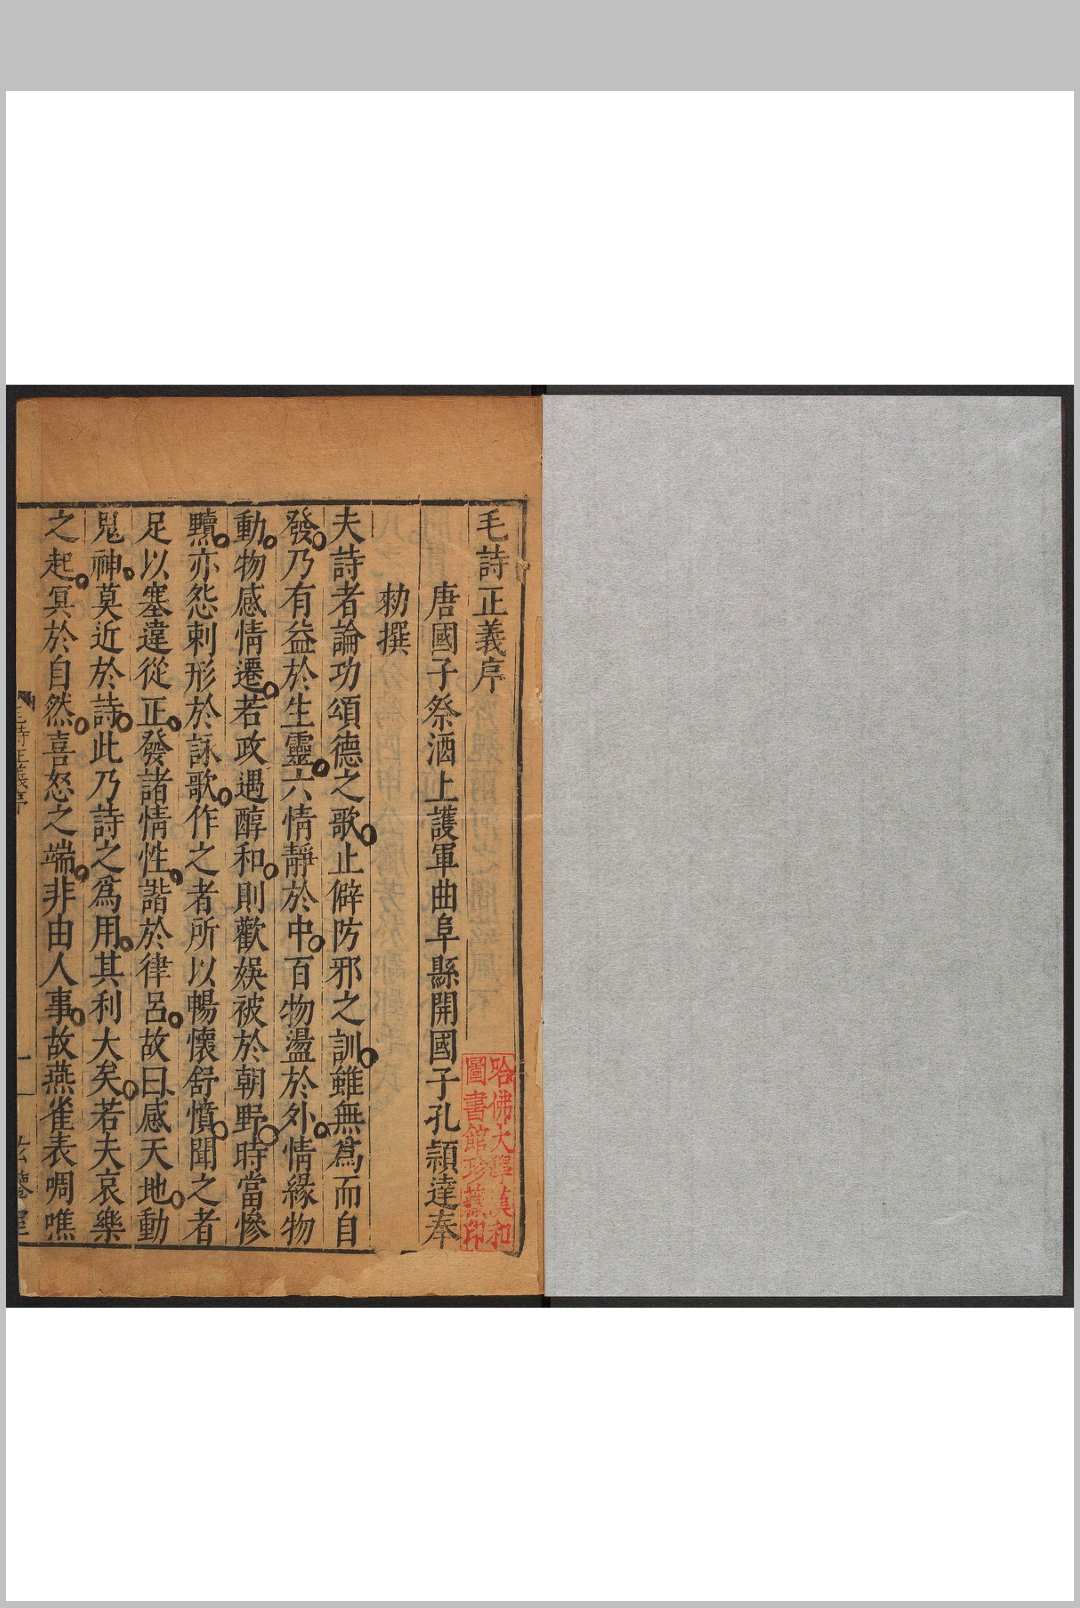 毛詩正義序
唐國子祭酒上護軍曲阜縣開國子孔頴達奉
勑撰
夫詩者論功頌德之歌止僻防邪之訓雖無爲而自
發乃有益於生靈六情靜於中百物盪於外情緣物
動物感情遷若政遇醇和則歡娛被於朝野時當慘
黷亦怨刺形於詠歌作之者所以暢懷舒憤聞之者
足以塞違從正發諸情性諧於律呂故曰感天地動
鬼神莫近於詩此乃詩之爲用其利大矣若夫哀樂
之起冥於自然喜怒之端非由人事故燕雀表啁噍
毛詩正義序
一
哈佛大學漢和
圖書館珍藏印